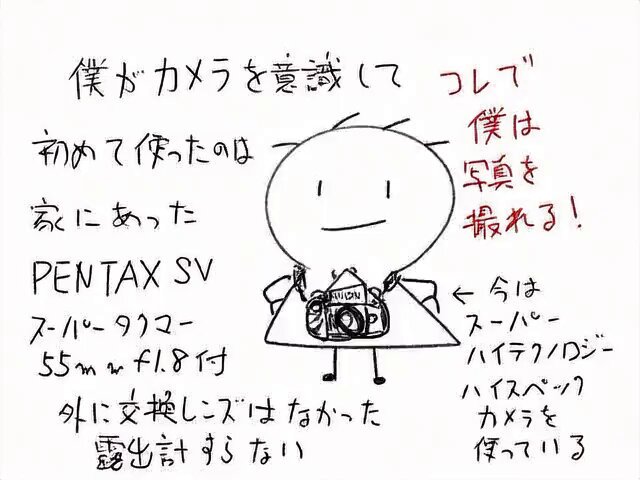 僕がカメラを意識して
初めて使ったのは
家にあった
PENTAX SV
スーパータクマー
55mm f1.8付
外に交換レンズはなかった
露出計すらない
コレで
僕は
写真を
撮れる!
←今は
スーパー
ハイテクノロジー
ハイスペック
カメラを
使っている